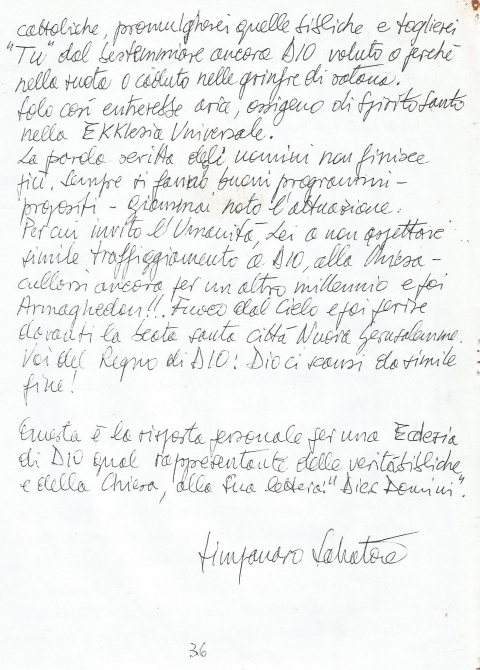 cattoliche, promulgherei quelle bibliche e toglierei
"Tu" dal bestemmiare ancora DIO voluto o perché
nella ruota o caduto nelle grinfie di satana.
Solo così entrerebbe aria, ossigeno di Spirito Santo
nella EKKlesia Universale.
La parola scritta degli uomini non finisce
più. Sempre si fanno buoni programmi -
propositi - giammai noto l'attuazione.
Per cui invito l'Umanità, Lei a non aspettare
simile traffiggiamento a DIO, alla Chiesa -
cullarsi ancora per un altro millennio e poi
Armaghedon!!. Fuoco dal Cielo e poi perire
davanti la beata santa città Nuova Gerusalemme.
Voi del Regno di DIO! Dio ci scansi da simile
fine!
Questa è la risposta personale per una Ecclesia
di DIO qual rappresentante delle verità bibliche
e della Chiesa, alla Sua lettera: "Dies Domini".
Simpanaro Salvatore
36